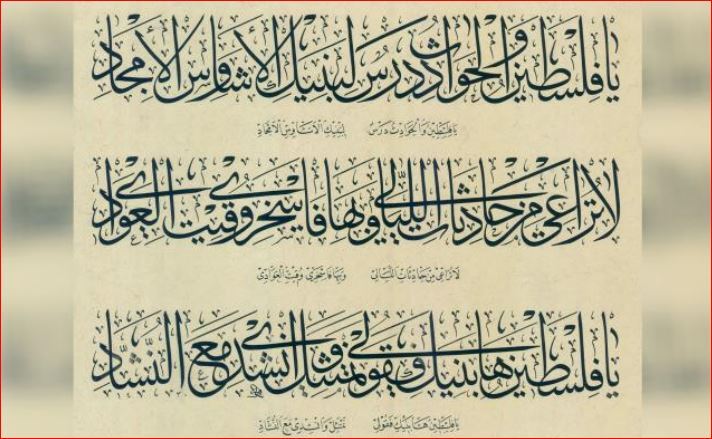 يا فلسطين والحوادث درس لبنيك الأشاوس الأمجاد
يا فلسطين والحوادث درس لبنيك الأشاوس الأمجاد
لا تراعي من حادثات الليالي وبها فاسخري وقيت العوادي
لا تراعي من حادثات الليالي وبها فاسخري وقيت العوادي
يا فلسطين ها بنيك فقولي نمتثل وانشدي مع النشاد
يا فلسطين ها بنيك فقولي نمتثل وانشدي مع النشاد